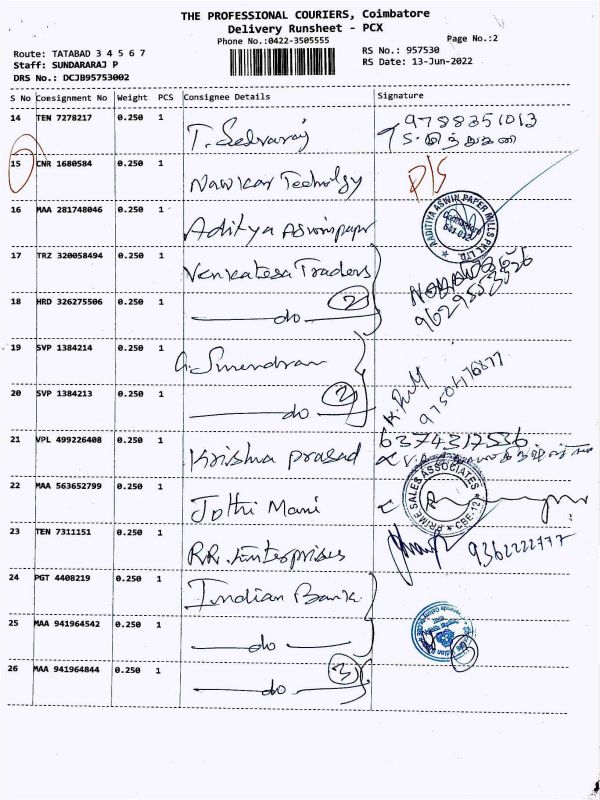 THE PROFESSIONAL COURIERS, Coimbatore
Delivery Runsheet - PCX
Phone No.:0422-3505555
Page No.:2
Route: TATABAD 3 4 5 6 7
RS No.: 957530
Staff: SUNDARARAJ P
RS Date: 13-Jun-2022
DRS No.: DCJB95753002
S No Consignment No Weight PCS Consignee Details Signature
14 TEN 7278217 0.250 1 T. Selvaraj 9788351013
15 CNR 1680584 0.250 1 Nawkar Technolgy D/S
16 MAA 281748046 0.250 1 Aditya Aswin paper
AADITIYA ASWIN PAPER MILLS PVT LTD.
Coimbatore
641 012
17 TRZ 320058494 0.250 1 Venkatesa Traders
18 HRD 326275506 0.250 1 do 2
19 SVP 1384214 0.250 1 Surendran
20 SVP 1384213 0.250 1 do 2 9750476877
21 VPL 499226408 0.250 1 Krishna prasad 6374317536
22 MAA 563652799 0.250 1 Jothi Mani
PRIME SALES ASSOCIATES
CBE-12
23 TEN 7311151 0.250 1 R.R. Enterprises 9362222777
24 PGT 4408219 0.250 1 Indian Bank
25 MAA 941964542 0.250 1 do
26 MAA 941964844 0.250 1 do 3